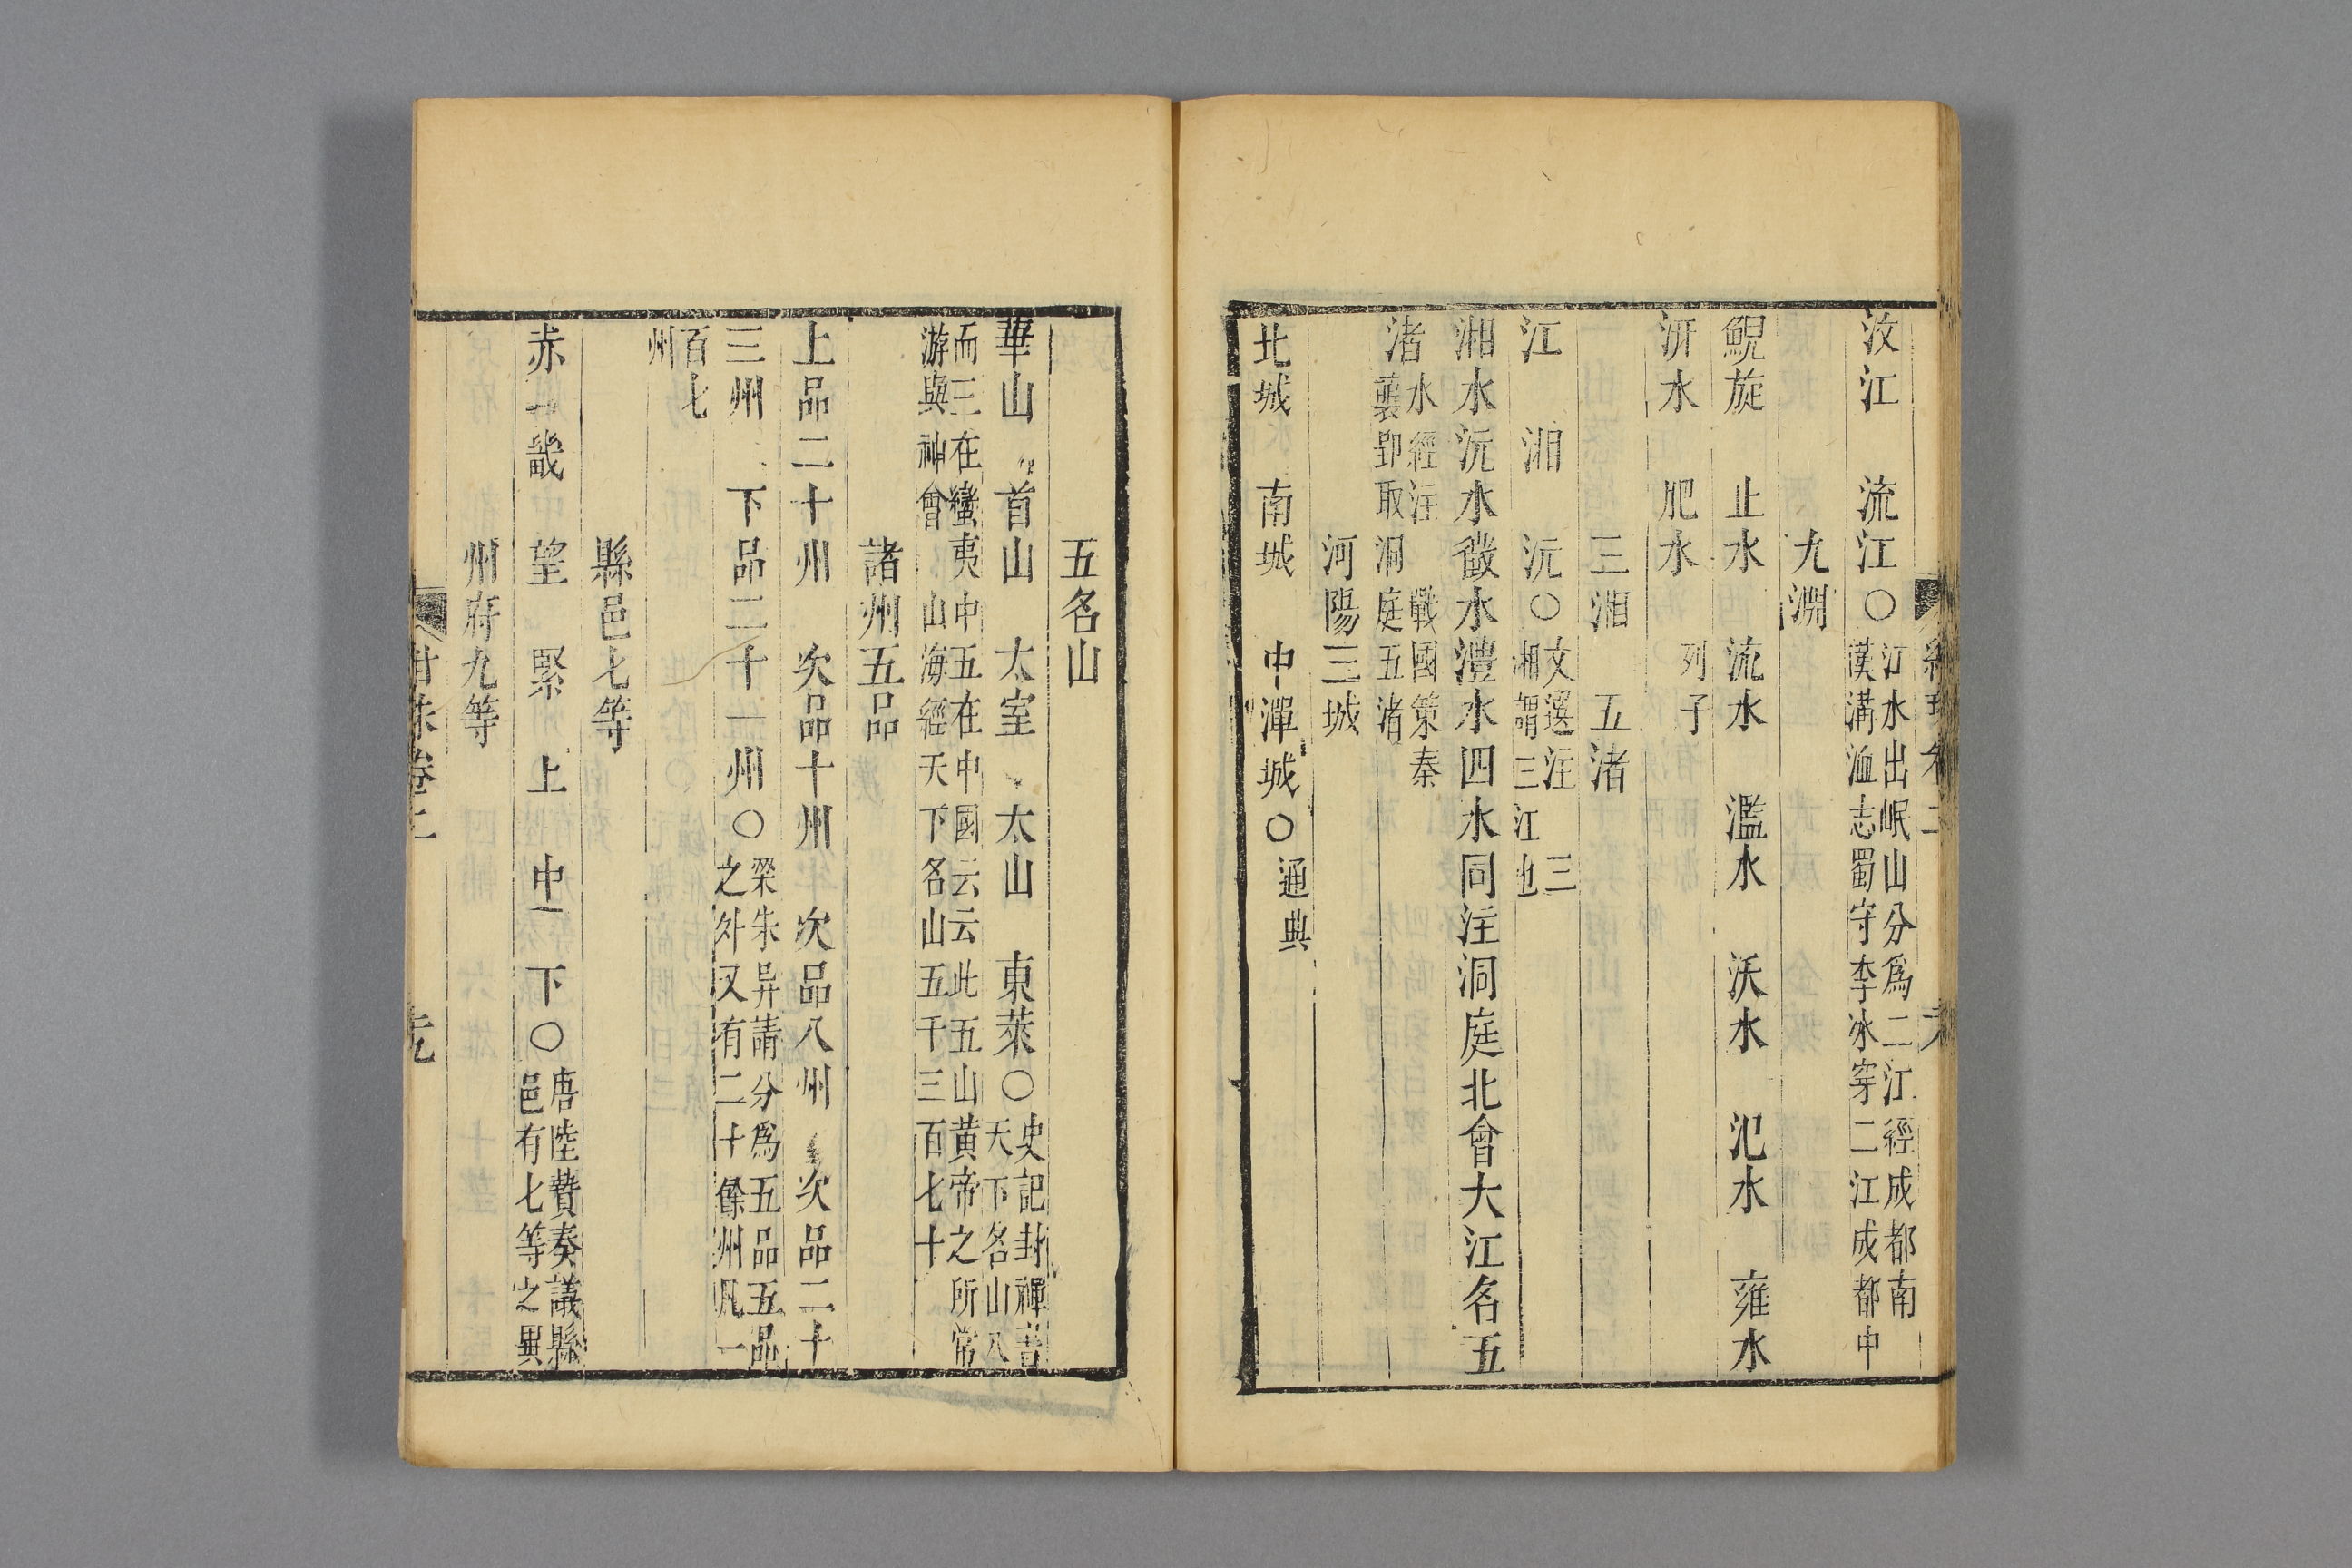 汶江　流江○江水出岷山分爲二江經成都南
漢溝洫志蜀守李冰穿二江成都中
九淵
鯢旋　止水　流水　濫水　沃水　氾水　雍水
汧水　肥水　列子
三湘　五渚
江　湘　沅○文選注　三
湘謂三江也
湘水沅水微水澧水四水同注洞庭北會大江名五
渚水經注　戰國策秦
襲郢取洞庭五渚
河陽三城
北城　南城　中潬城○通典
五名山
華山　首山　太室　太山　東萊○史記封禪書
天下名山八
而三在蠻夷中五在中國云云此五山黃帝之所常
游與神會　山海經天下名山五千三百七十
諸州五品
上品二十州　次品十州　次品八州　次品二十
三州　下品二十一州○梁朱异請分爲五品五品
之外又有二十餘州凡一
百七
州
縣邑七等
赤　畿　望　緊　上　中　下○唐陸贄奏議縣
邑有七等之異
州府九等